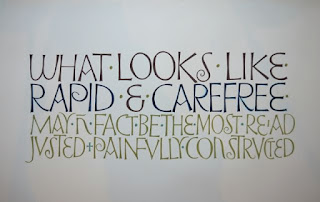 WHAT·LOOKS·LIKE·
RAPID·&·CAREFREE·
MAY·IN·FACT·BE·THE·MOST·RE·AD
JUSTED+PAINFULLY·CONSTRUCTED